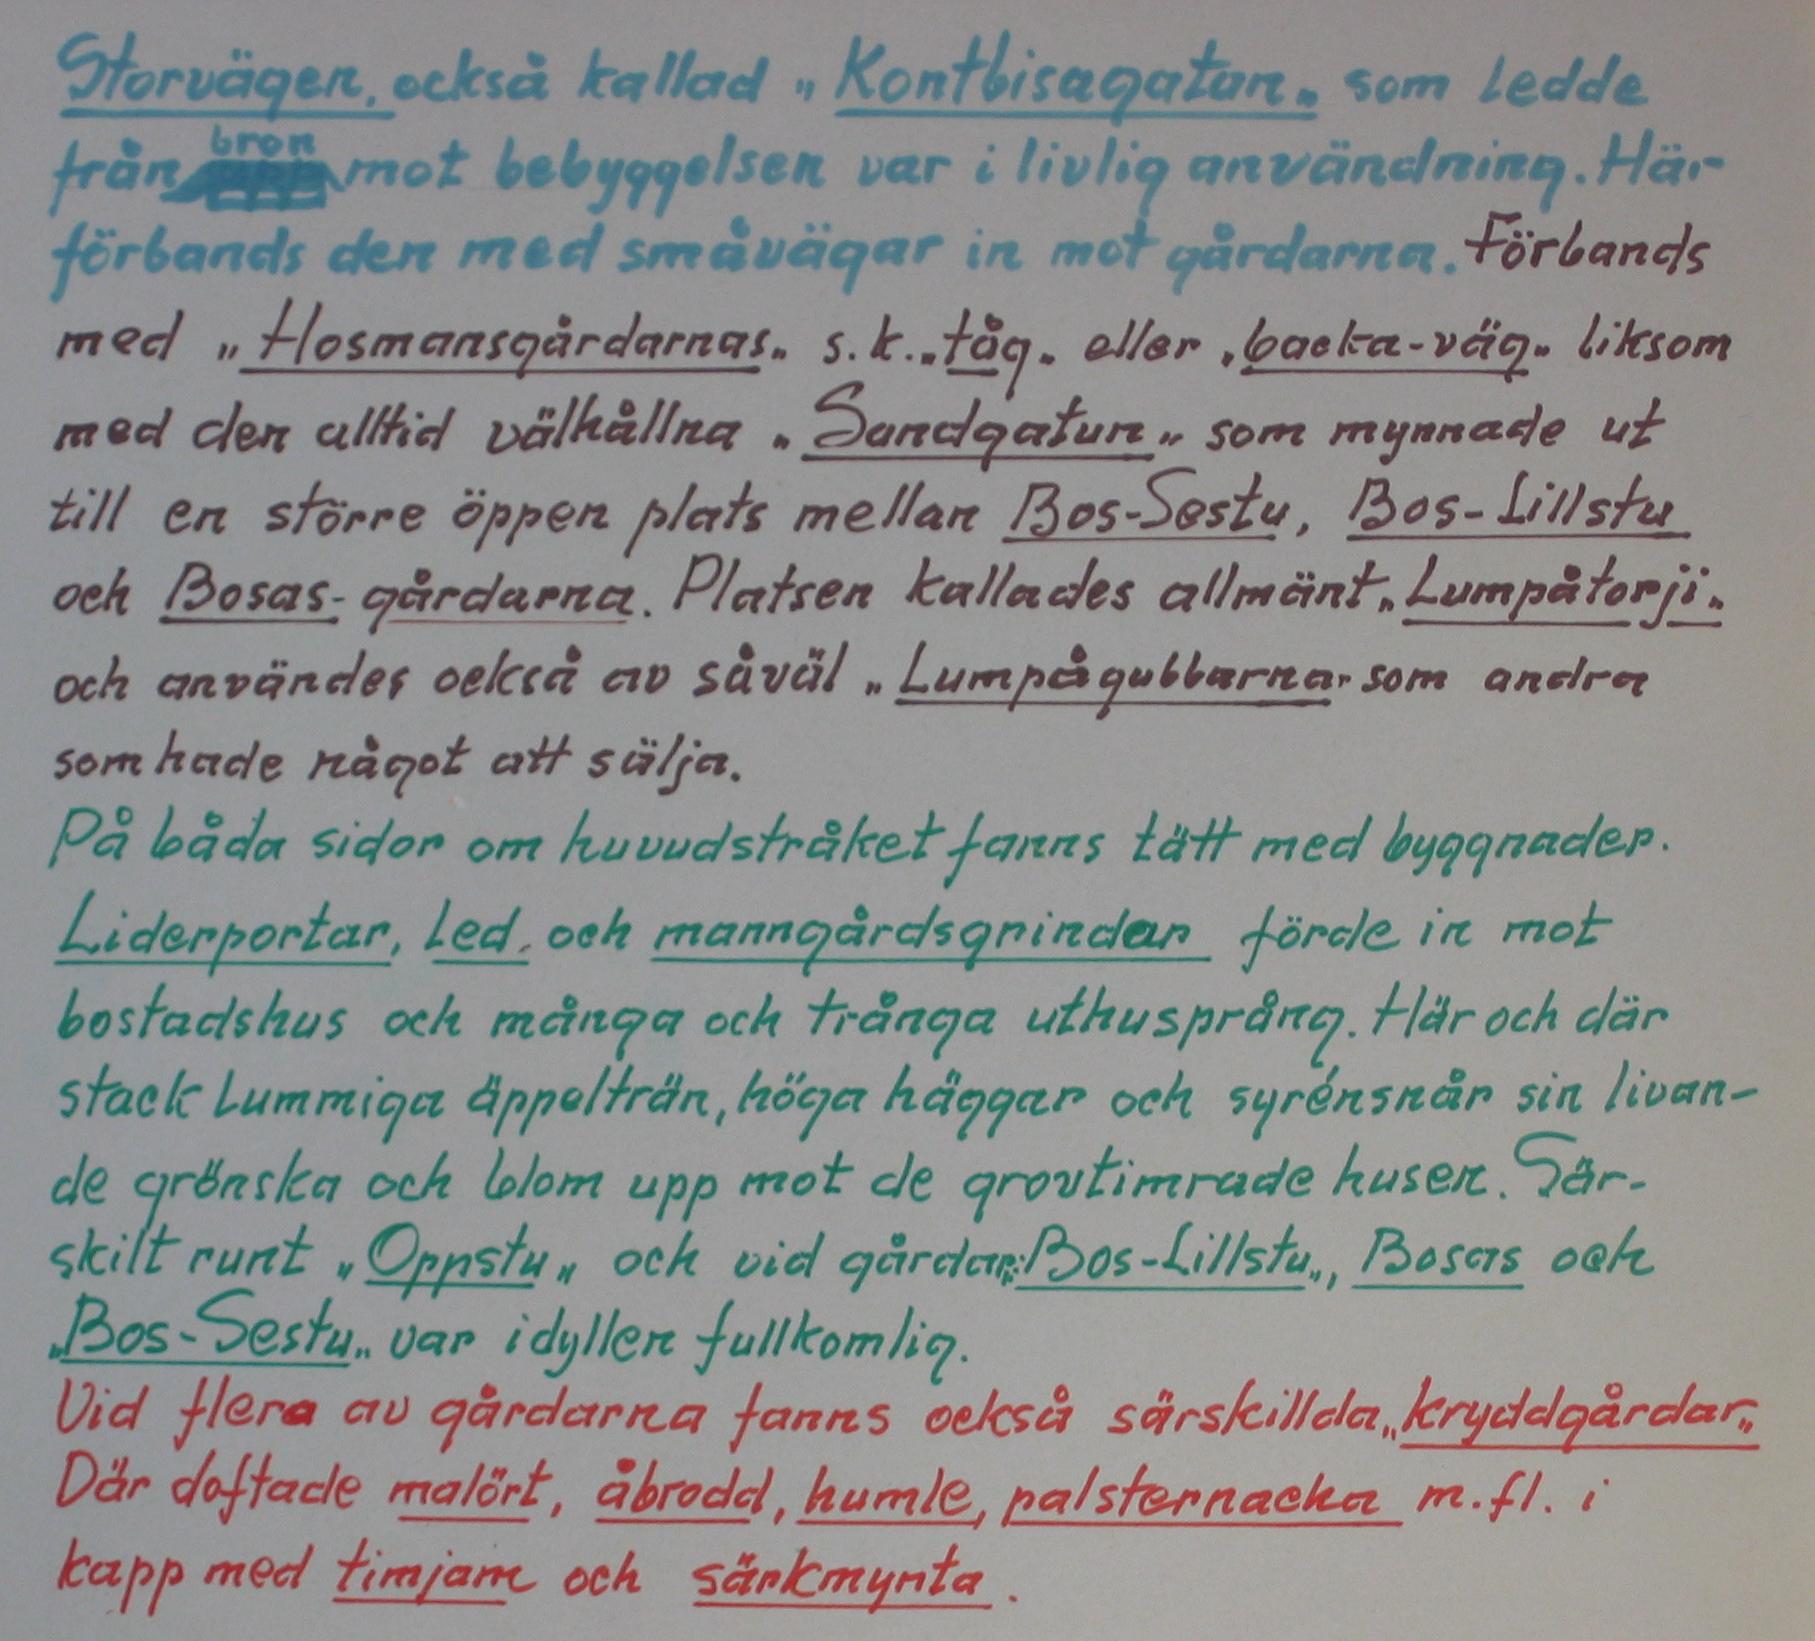 Storvägen, också kallad "Kontbisagatan" som ledde
från bron mot bebyggelsen var i livlig användning. Här-
förbands den med småvägar in mot gårdarna. Förbands
med "Hosmansgårdarnas" s.k. "tåg" eller "backa-väg" liksom
med den alltid välhållna "Sandgatun" som mynnade ut
till en större öppen plats mellan Bos-Sestu, Bos-Lillstu
och Bosas-gårdarna. Platsen kallades allmänt "Lumpåtorji"
och användes också av såväl "Lumpågubbarna" som andra
som hade något att sälja.
På båda sidor om huvudstråket fanns tätt med byggnader.
Liderportar, Led, och manngårdsgrindar förde in mot
bostadshus och många och trånga uthusprång. Här och där
stack lummiga äppelträn, höga häggar och syrénsnår sin livan-
de grönska och blom upp mot de grovtimrade husen. Sär-
skilt runt "Oppstu" och vid gårdar: "Bos-Lillstu", Bosas och
"Bos-Sestu" var idyllen fullkomlig.
Vid flera av gårdarna fanns också särskillda "kryddgårdar"
Där doftade malört, åbrodd, humle, palsternacka m.fl. i
kapp med timjam och särkmynta.